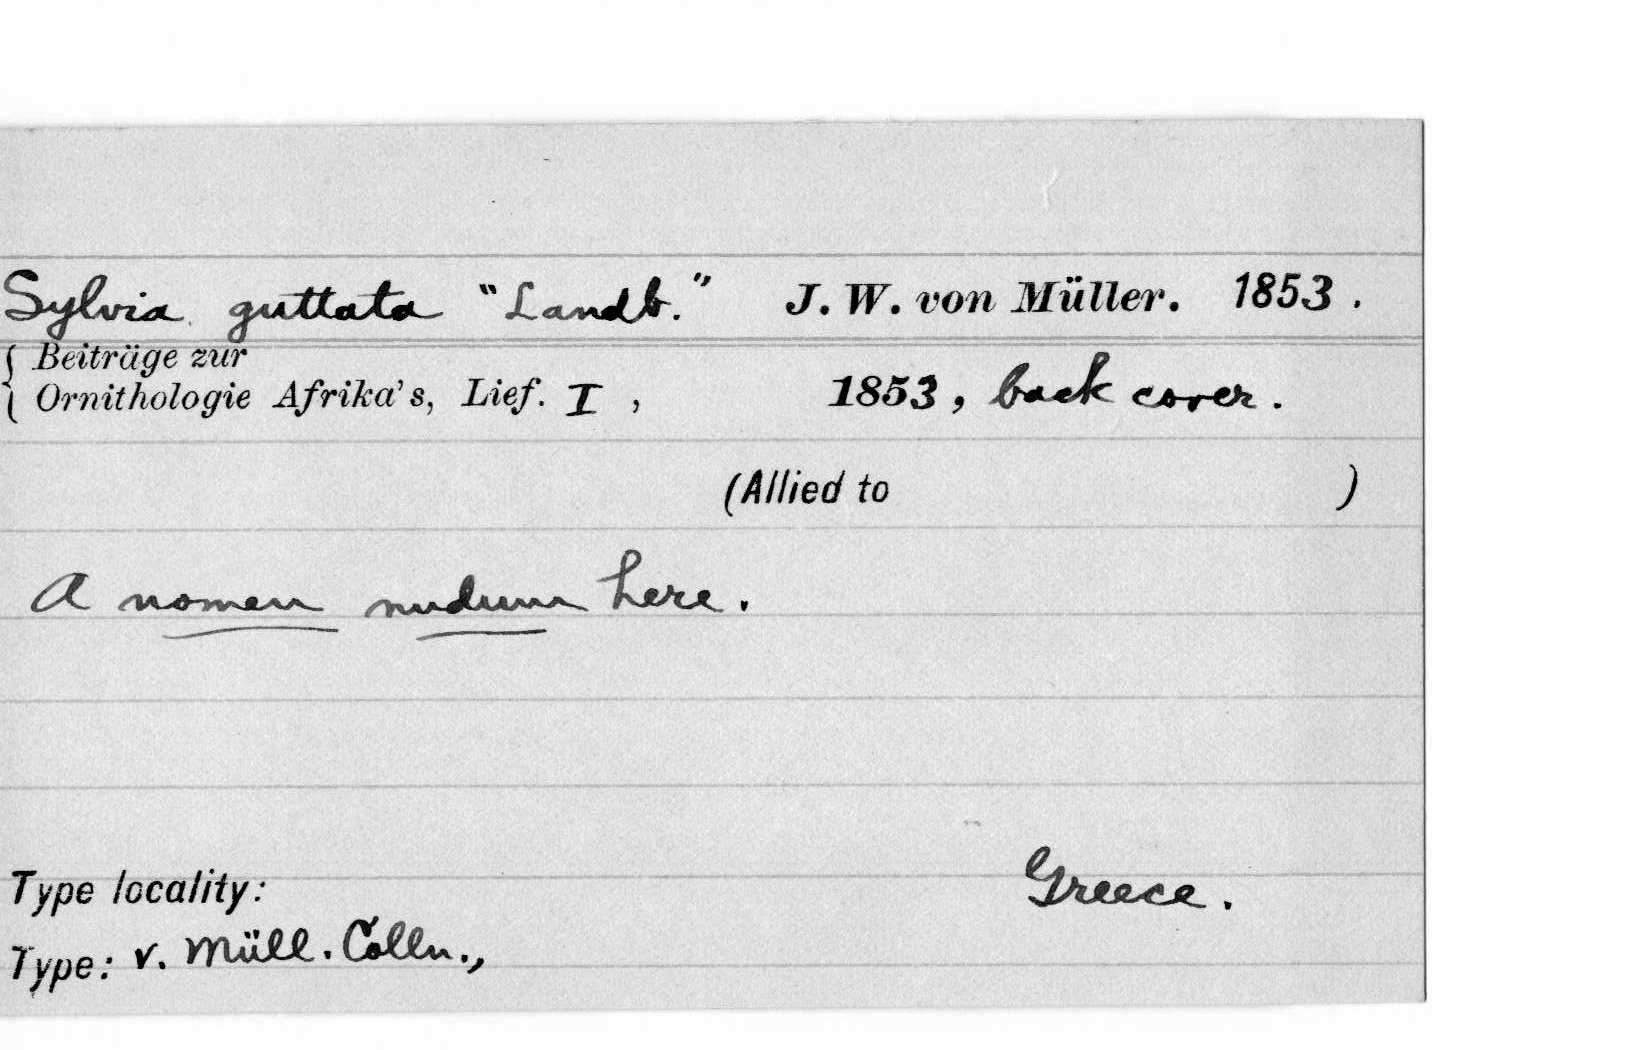 Sylvia guttata "Landb." J. W. von Müller. 1853.
Beiträge zur
Ornithologie Afrika's, Lief. I, 1853, back cover.
(Allied to )
A nomen nudum here.
Type locality: Greece.
Type: v. Müll. Colln.,